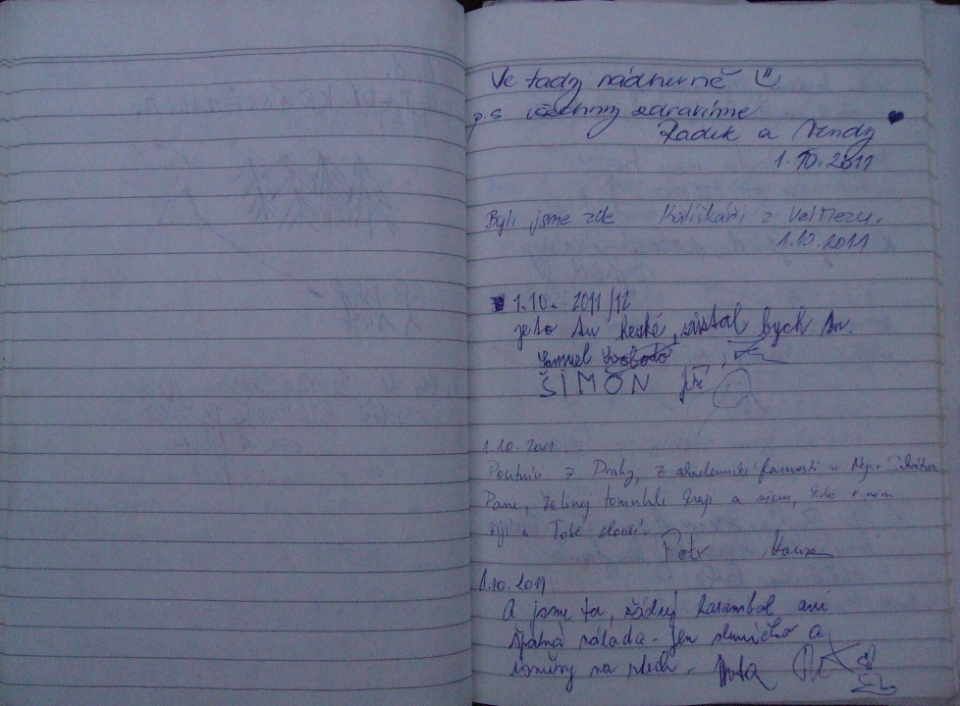 Ve tady nádherně
p.s všechny zdravíme
Radek a Vendy
1.10.2011
Byli jsme zde Kališkáři z ValMezu.
1.10.2011
1.10. 2011/12
je to tu hezké, zůstal bych tu.
Samuel Svoboda
ŠIMON
1.10.2011
Poutníci z Prahy, z akademické farnosti u Nejsv. Salvátora
Pane, žehnej tomuhle kraji a všem, kdo v něm
žijí a Tobě slouží.
Petr
1.10.2011
A jsme tu, žádný karambol ani
špatná nálada - jen sluníčko a
úsměvy na rtech -